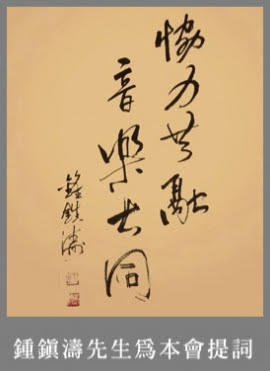 協力共融
音樂大同
鍾鎮濤
鍾鎮濤先生爲本會提詞